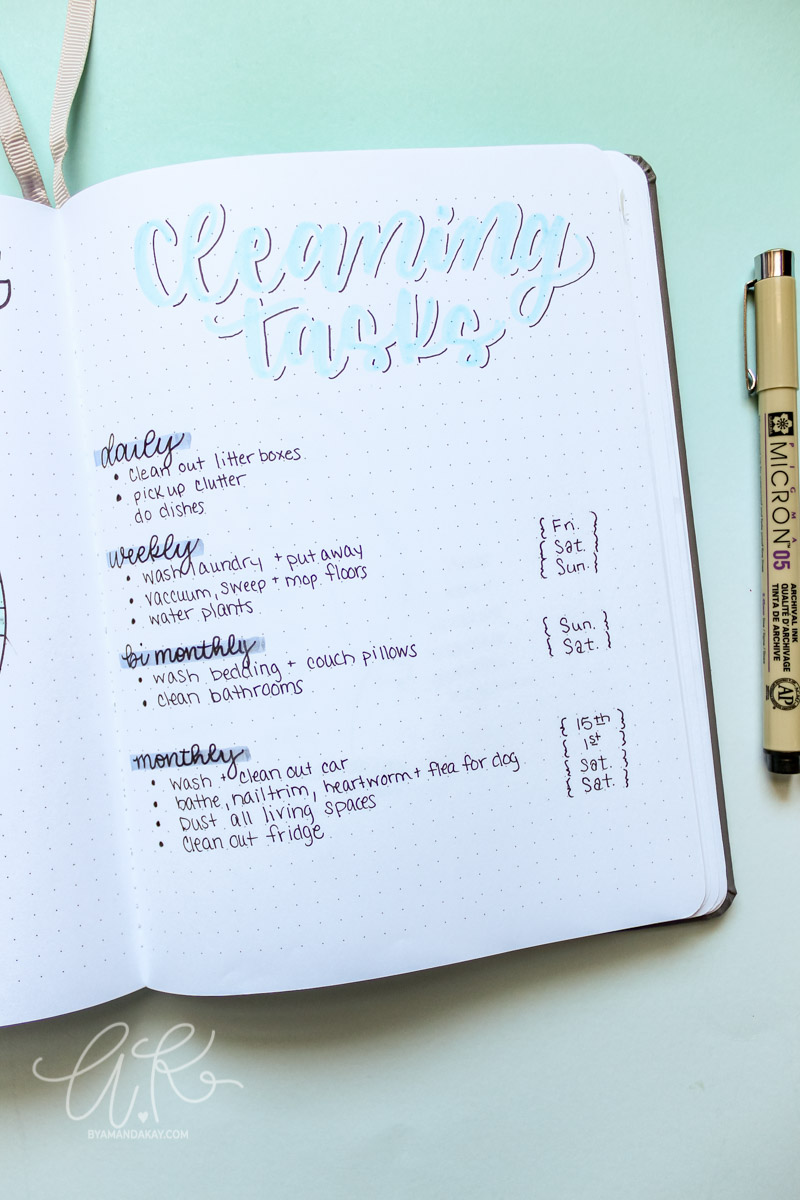 cleaning
tasks
daily
• clean out litter boxes
• pick up clutter
do dishes
weekly
• wash laundry + put away { Fri. }
• vaccuum, sweep + mop floors { Sat. }
• water plants { Sun. }
bi monthly
• wash bedding + couch pillows { Sun. }
• clean bathrooms { Sat. }
monthly
• wash + clean out car { 15th }
• bathe, nail trim, heartworm + flea for dog { 1st }
• Dust all living spaces { Sat. }
• clean out fridge { Sat. }
PIGMA
MICRON™ 05
ARCHIVAL INK
QUALITÉ D'ARCHIVAGE
TINTA DE ARCHIVE
AP
a.K
BYAMANDAKAY.COM